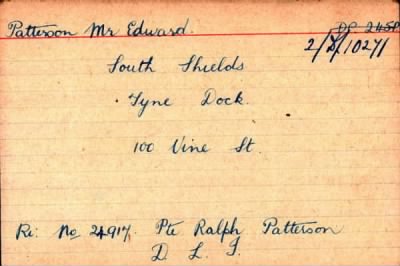 Patterson Mr Edward. DP. 2458
2/D/10271
South Shields
Tyne Dock.
100 Vine St.
Re: No 24917. Pte Ralph Patterson
D. L. I.